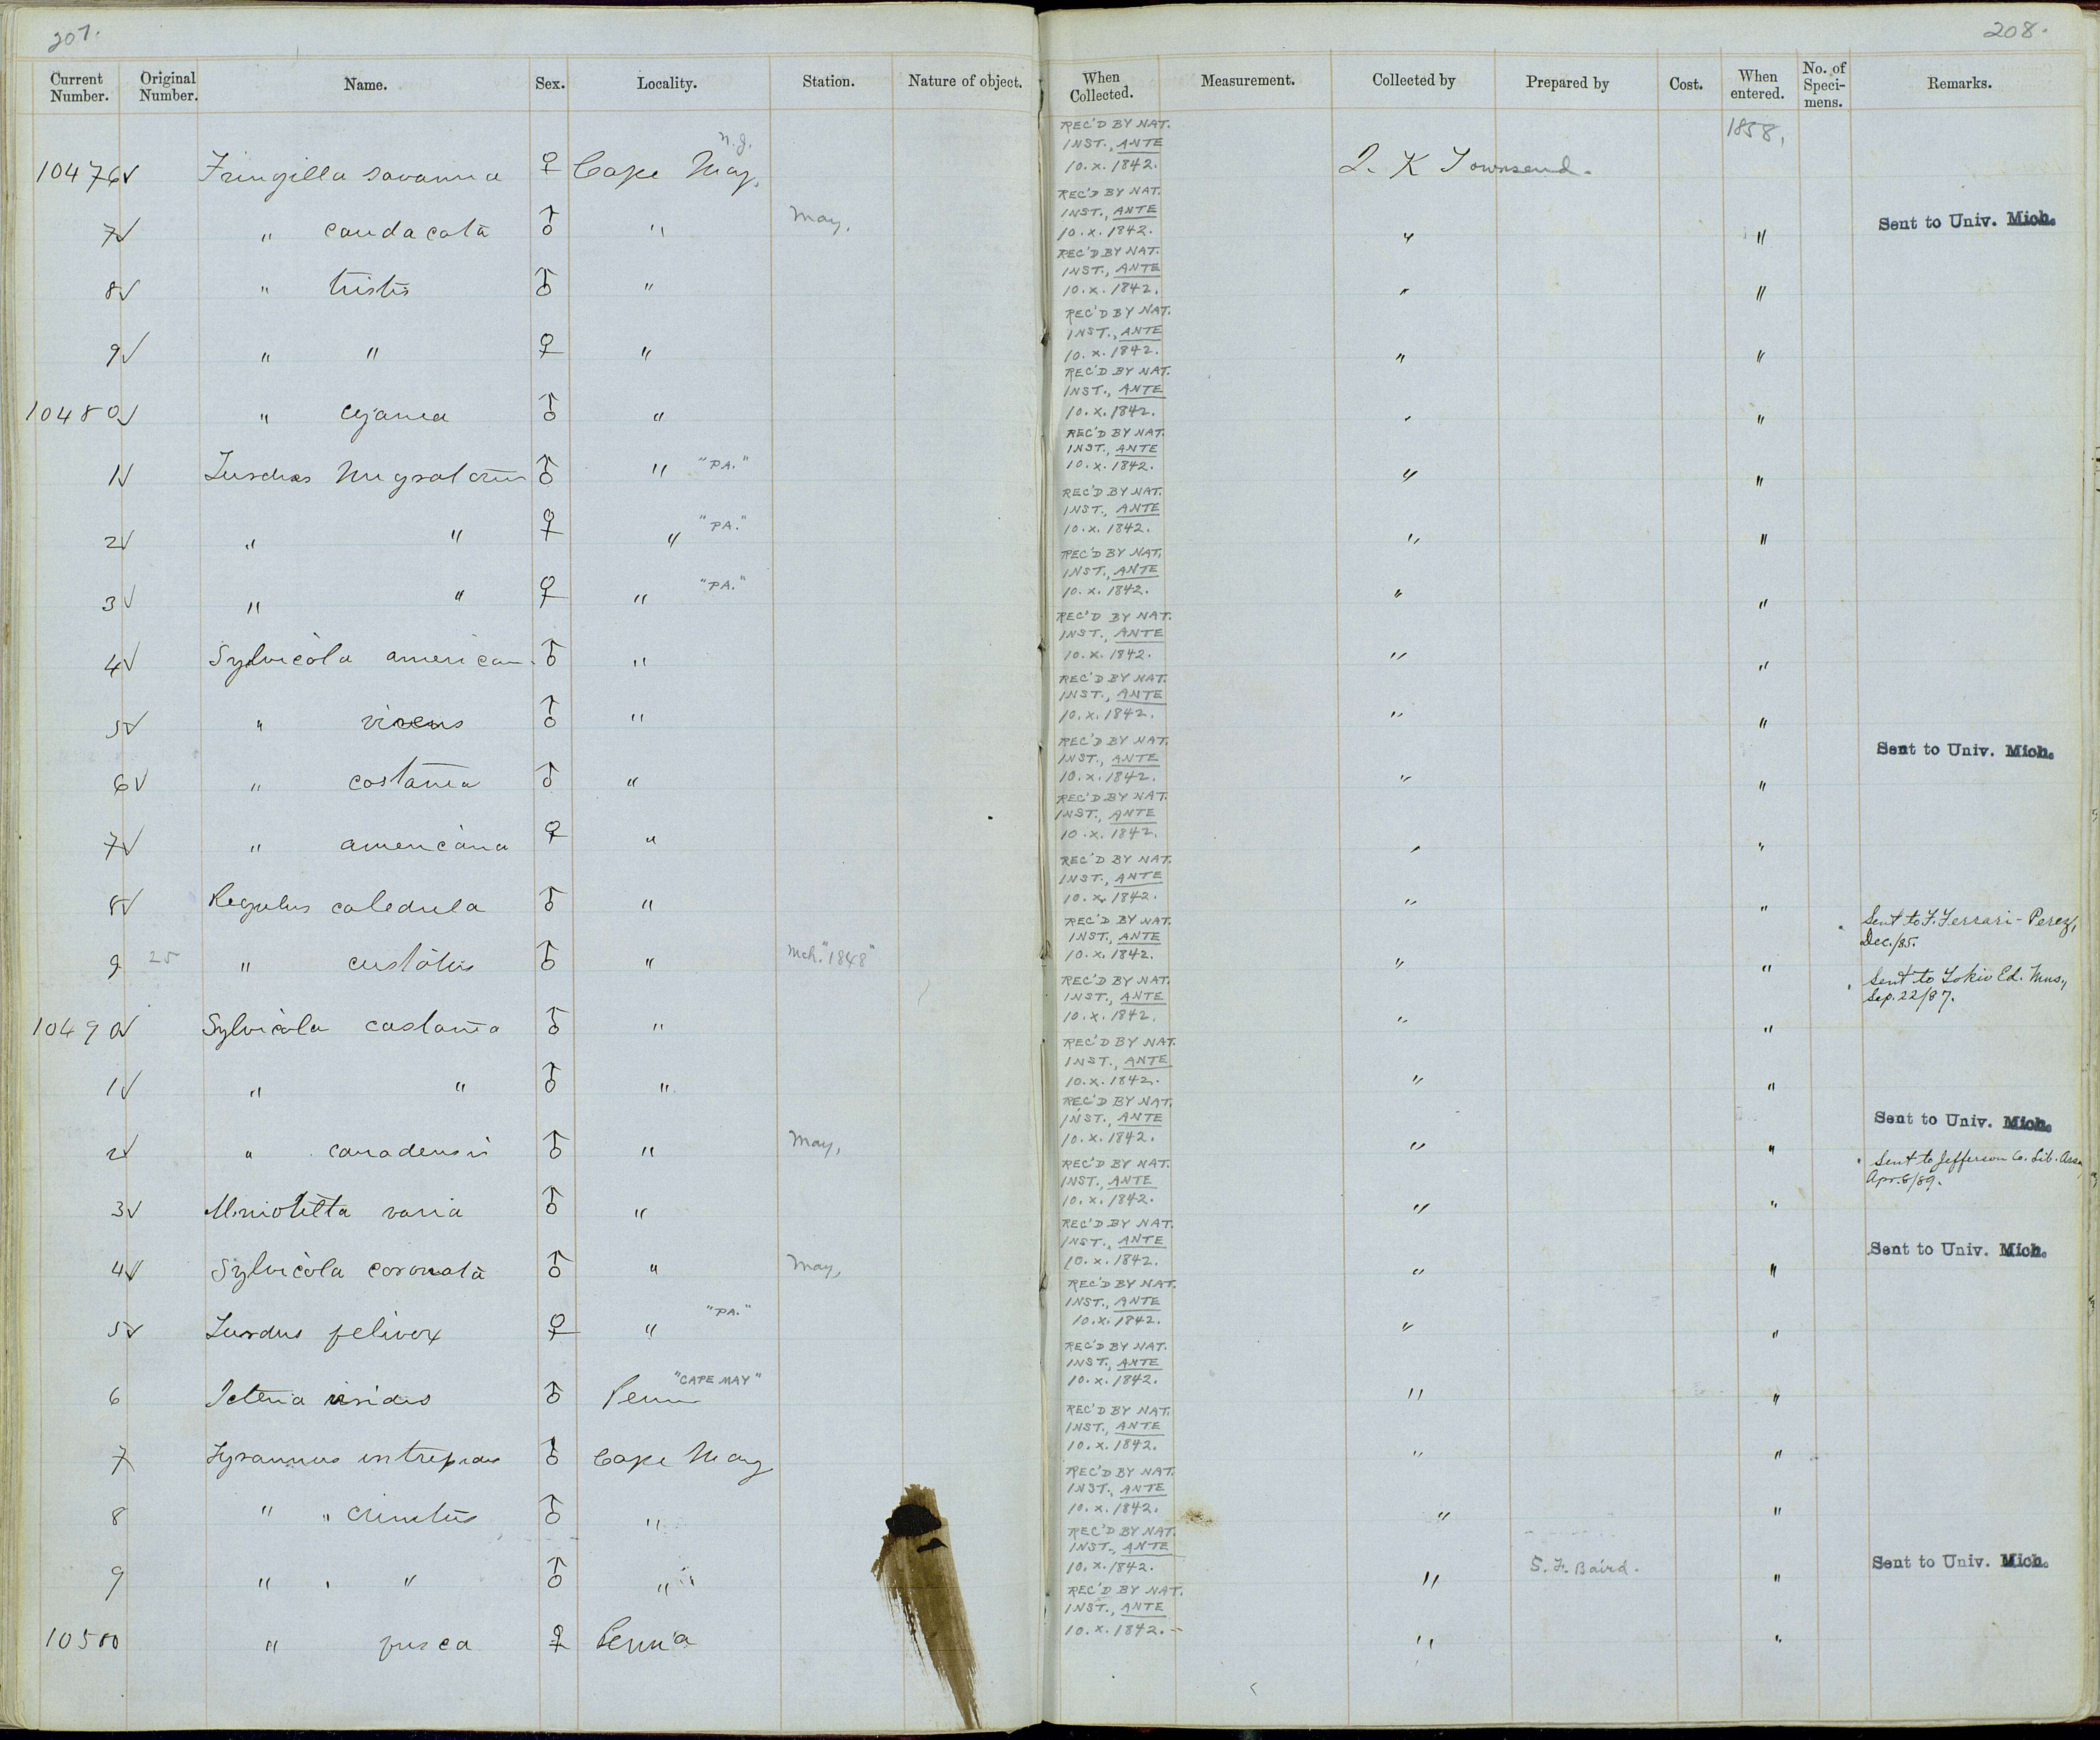 207.
208.
Current Number. Original Number. Name. Sex. Locality. Station. Nature of object. When Collected. Measurement. Collected by Prepared by Cost. When entered. No. of Speci-mens. Remarks.
10476✓ Fringilla savanna ♀ Cape May, N.J. REC'D BY NAT. INST., ANTE 10.X.1842. J. K Townsend. 1858,
7✓ " caudacata ♂ " May, REC'D BY NAT. INST., ANTE 10.X.1842. " " Sent to Univ. Mich.
8✓ " tristis ♂ " REC'D BY NAT. INST., ANTE 10.X.1842. " "
9✓ " " ♀ " REC'D BY NAT. INST., ANTE 10.X.1842. " "
10480✓ " cyanea ♂ " REC'D BY NAT. INST., ANTE 10.X.1842. " "
1✓ Turdus migratorius ♂ " "PA." REC'D BY NAT. INST., ANTE 10.X.1842. " "
2✓ " " ♀ " "PA." REC'D BY NAT. INST., ANTE 10.X.1842. " "
3✓ " " ♀ " "PA." REC'D BY NAT. INST., ANTE 10.X.1842. " "
4✓ Sylvicola american ♂ " REC'D BY NAT. INST., ANTE 10.X.1842. " "
5✓ " virens ♂ " REC'D BY NAT. INST., ANTE 10.X.1842. " "
6✓ " castanea ♂ " REC'D BY NAT. INST., ANTE 10.X.1842. " " Sent to Univ. Mich.
7✓ " americana ♀ " REC'D BY NAT. INST., ANTE 10.X.1842. " "
8✓ Regulus caledula ♂ " REC'D BY NAT. INST., ANTE 10.X.1842. " "
9 25 " custatus ♂ " Mch. "1848" REC'D BY NAT. INST., ANTE 10.X.1842. " " Sent to F. Ferrari-Perez, Dec./85.
10490✓ Sylvicola castanea ♂ " REC'D BY NAT. INST., ANTE 10.X.1842. " " Sent to Tokio Ed. Mus., Sep. 22/87.
1✓ " " ♂ " REC'D BY NAT. INST., ANTE 10.X.1842. " "
2✓ " canadensis ♂ " May, REC'D BY NAT. INST., ANTE 10.X.1842. " " Sent to Univ. Mich.
3✓ Mniotilta varia ♂ " REC'D BY NAT. INST., ANTE 10.X.1842. " " Sent to Jefferson Co. Lib. Assn, Apr. 8/89.
4✓ Sylvicola coronata ♂ " May, REC'D BY NAT. INST., ANTE 10.X.1842. " " Sent to Univ. Mich.
5✓ Turdus felivox ♀ " "PA." REC'D BY NAT. INST., ANTE 10.X.1842. " "
6 Icteria viridis ♂ Penn "CAPE MAY" REC'D BY NAT. INST., ANTE 10.X.1842. " "
7 Tyrannus intrepidus ♂ Cape May REC'D BY NAT. INST., ANTE 10.X.1842. " "
8 " " crinitus ♂ " REC'D BY NAT. INST., ANTE 10.X.1842. " "
9 " " ♂ " REC'D BY NAT. INST., ANTE 10.X.1842. " S. F. Baird. " Sent to Univ. Mich.
10500 " fusca ♀ Penn'a REC'D BY NAT. INST., ANTE 10.X.1842. " "